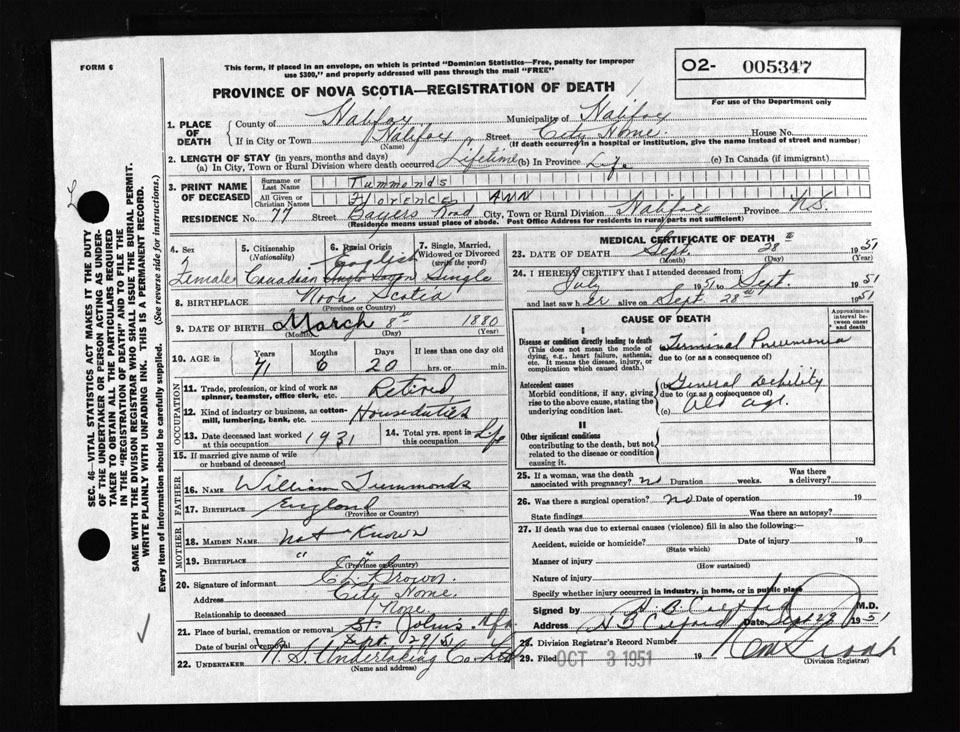 FORM 6
This form, if placed in an envelope, on which is printed "Dominion Statistics—Free, penalty for improper
use $300," and properly addressed will pass through the mail "FREE"
O2- 005347
For use of the Department only
PROVINCE OF NOVA SCOTIA—REGISTRATION OF DEATH
1. PLACE OF DEATH
County of Halifax Municipality of Halifax
If in City or Town Halifax Street City Home. House No.
(Name) (If death occurred in a hospital or institution, give the name instead of street and number)
2. LENGTH OF STAY (in years, months and days)
(a) In City, Town or Rural Division where death occurred Lifetime (b) In Province Life (c) In Canada (if immigrant)
3. PRINT NAME OF DECEASED
Surname or Last Name Tummonds
All Given or Christian Names Florence Ann
RESIDENCE No. 77 Street Bayers Road City, Town or Rural Division Halifax Province N.S.
(Residence means usual place of abode. Post Office Address for residents in rural parts not sufficient)
4. Sex 5. Citizenship (Nationality) 6. Racial Origin 7. Single, Married, Widowed or Divorced (write the word)
Female Canadian English Anglo Saxon Single
8. BIRTHPLACE Nova Scotia
(Province or Country)
9. DATE OF BIRTH March 8th 1880
(Month) (Day) (Year)
10. AGE in Years Months Days If less than one day old
71 6 20 hrs. or min.
OCCUPATION
11. Trade, profession, or kind of work as
spinner, teamster, office clerk, etc. Retired
12. Kind of industry or business, as cotton-
mill, lumbering, bank, etc. Houseduties
13. Date deceased last worked
at this occupation 1931
14. Total yrs. spent in
this occupation Life
15. If married give name of wife
or husband of deceased
FATHER
16. NAME William Tummonds
17. BIRTHPLACE England
(Province or Country)
MOTHER
18. MAIDEN NAME Not Known
19. BIRTHPLACE " "
(Province or Country)
20. Signature of informant Brown.
Address City Home.
Relationship to deceased None.
21. Place of burial, cremation or removal St. John's
Date of burial or removal Sept 29/51
22. UNDERTAKER N.S. Undertaking Co. Ltd
(Name and address)
MEDICAL CERTIFICATE OF DEATH
23. DATE OF DEATH Sept. 28th 1951
(Month) (Day) (Year)
24. I HEREBY CERTIFY that I attended deceased from
July 1951 to Sept. 1951
and last saw her alive on Sept. 28th 1951
CAUSE OF DEATH
Approximate interval between onset and death
I
Disease or condition directly leading to death
(This does not mean the mode of
dying, e.g., heart failure, asthenia,
etc. It means the disease, injury, or
complication which caused death.)
(a) Terminal Pneumonia
due to (or as a consequence of)
Antecedent causes
Morbid conditions, if any, giving
rise to the above cause, stating the
underlying condition last.
(b) General Debility
due to (or as a consequence of)
(c) Old age.
II
Other significant conditions
contributing to the death, but not
related to the disease or condition
causing it.
25. If a woman, was the death
associated with pregnancy? No Duration weeks. Was there a delivery?
26. Was there a surgical operation? No Date of operation 19
State findings Was there an autopsy?
27. If death was due to external causes (violence) fill in also the following:—
Accident, suicide or homicide? Date of injury 19
(State which)
Manner of injury
(How sustained)
Nature of injury
Specify whether injury occurred in industry, in home, or in public place
Signed by H B M.D.
Address H B Date Sept 28 1951
28. Division Registrar's Record Number
29. Filed OCT 3 1951 19
(Division Registrar)
SEC. 46—VITAL STATISTICS ACT MAKES IT THE DUTY
OF THE UNDERTAKER OR PERSON ACTING AS UNDER-
TAKER TO OBTAIN ALL THE PARTICULARS REQUIRED
IN THE "REGISTRATION OF DEATH" AND TO FILE THE
SAME WITH THE DIVISION REGISTRAR WHO SHALL ISSUE THE BURIAL PERMIT.
WRITE PLAINLY WITH UNFADING INK. THIS IS A PERMANENT RECORD.
Every item of information should be carefully supplied. (See reverse side for instructions.)